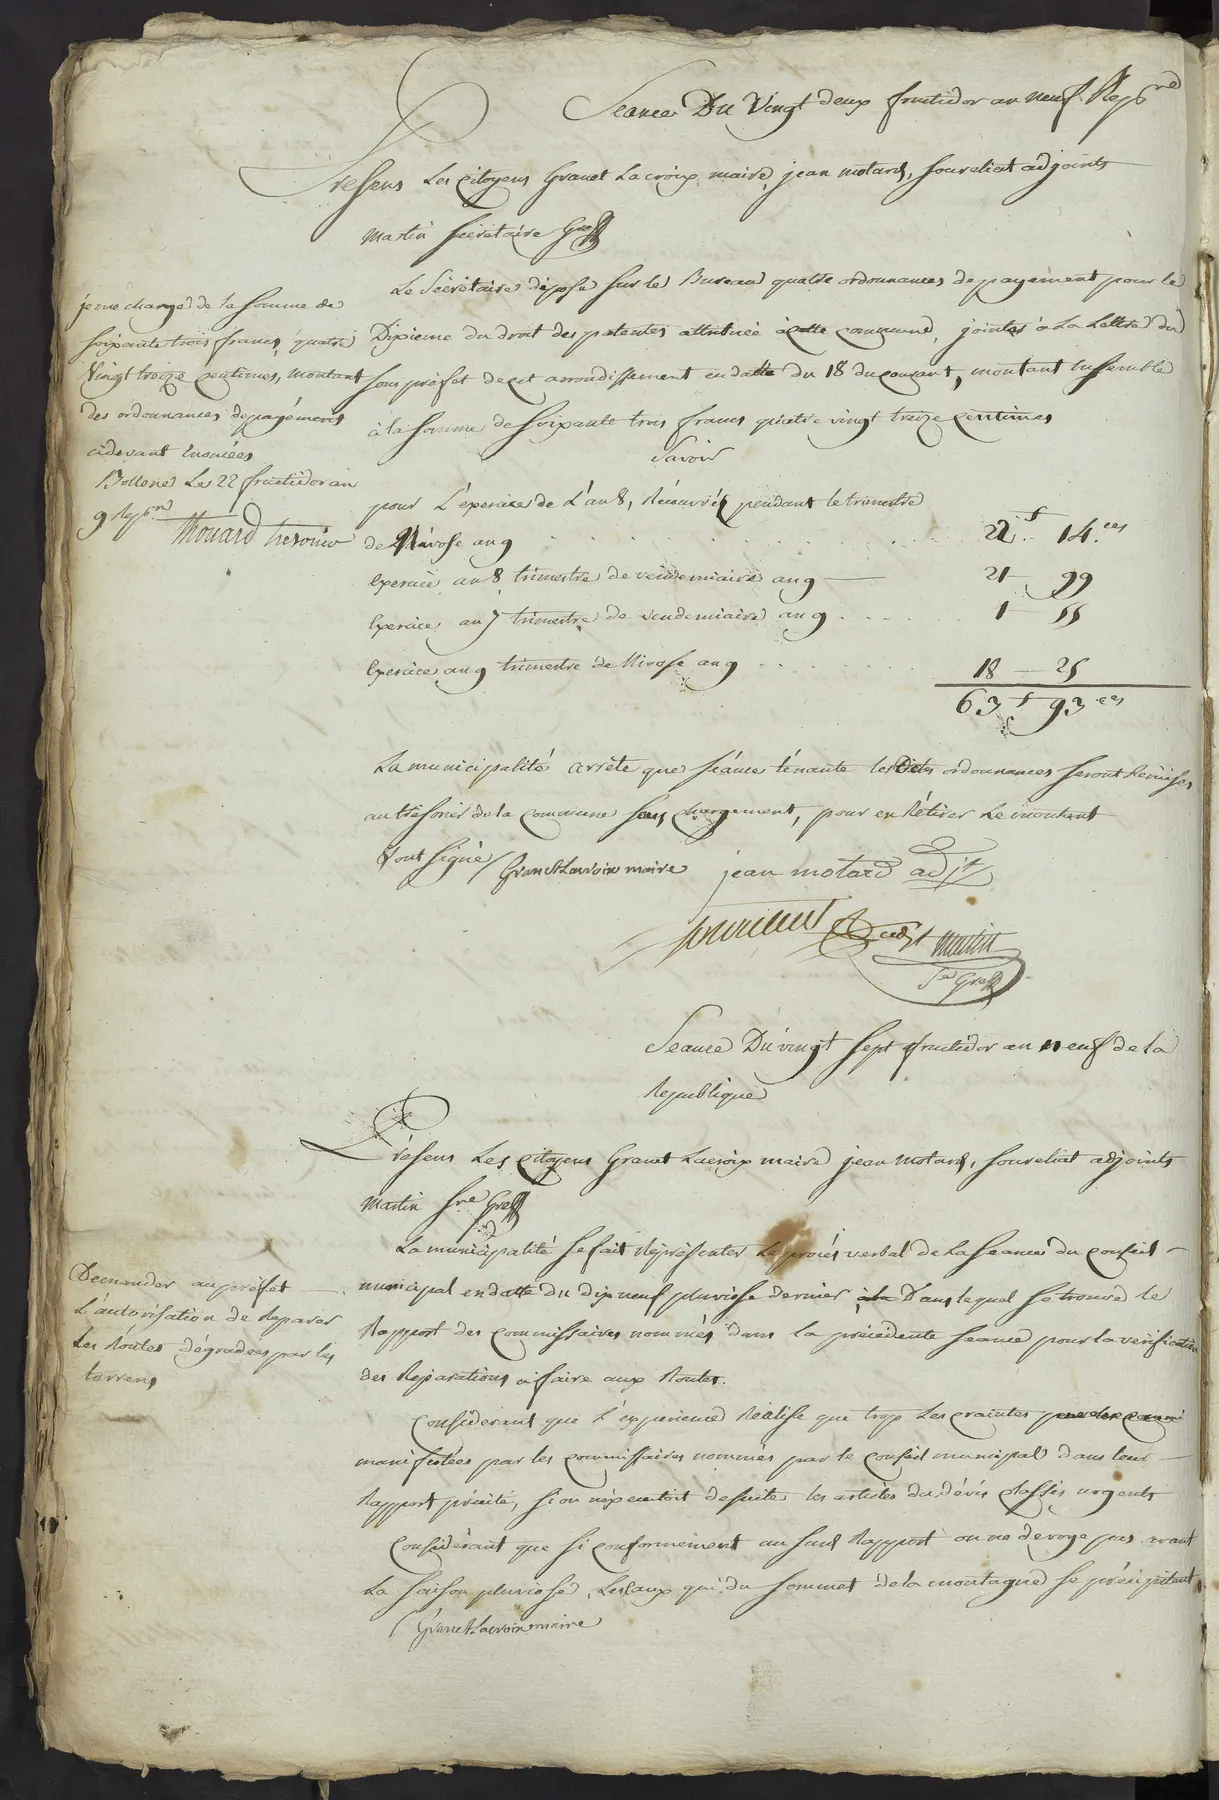 Séance Du Vingt deux fructidor an neuf Rep.ne
Présens les Citoyens Granet Lacroix maire, jean motard, Souveliat adjoints
Martin Sécrétaire Greff
Le Sécrétaire dépose sur le Bureau quatre ordonnances de payement pour le
Dixieme du droit des patentes attribuée à cette commune, jointes à La Lettre du
sous préfet de cet arrondissement en datte du 18 du courant, montant Ensemble
à la somme de soixante trois francs quatre vingt treize centimes
Savoir
pour L'exercice de L'an 8, Récouvrés pendant le trimestre
de Nivose an 9 . . . . . 22 f 14 ces
Exercice an 8 trimestre de vendemiaire an 9 — 21 — 99
Exercice an 7 trimestre de vendemiaire an 9 . . . . 1 — 55
Exercice an 9 trimestre de Nivose an 9 . . . . . 18 — 25
63 f 93 ces
je me charge de la somme de
soixante trois francs, quatre
Vingt treize centimes, montant
des ordonnances de payément
cidevant Enoncées
Bollene Le 22 fructidor an
9 Rep.ne Thouard tresorier
La municipalité arrête que séance ténante lesdites ordonnances seront Remises
au trésorier de la commune sous chargement, pour en Rétirer Le montant
& ont signé / Granet Lacroix maire jean motard adjt
Souveliat adjt Martin
Sre Greff
Séance Du vingt sept fructidor an neuf de la
République
Présens Les Citoyens Granet Lacroix maire jean Motard, Souveliat adjoints
Martin Sre Greff
La municipalité se fait Réprésenter Le procès verbal de La Séance du conseil
municipal en datte du dix neuf pluviose dernier, à la Dans lequel se trouve le
Rapport des commissaires nommés dans la précédente séance pour la vérification
des Réparations à faire aux Routes.
Demander au préfet
L'autorisation de Reparer
Les Routes dégradées par les
torrens
Considérant que L'expérience Réalise que trop Les craintes
manifestées par les commissaires nommés par le conseil municipal dans leur
Rapport précité, si on n'éxécutoit de suite les articles du dévis classés urgents
Considérant que si conformément au susd Rapport on ne devoye pas avant
La saison pluviose, Les Eaux qui du sommet de la montagne se précipitent
/ Granet Lacroix maire